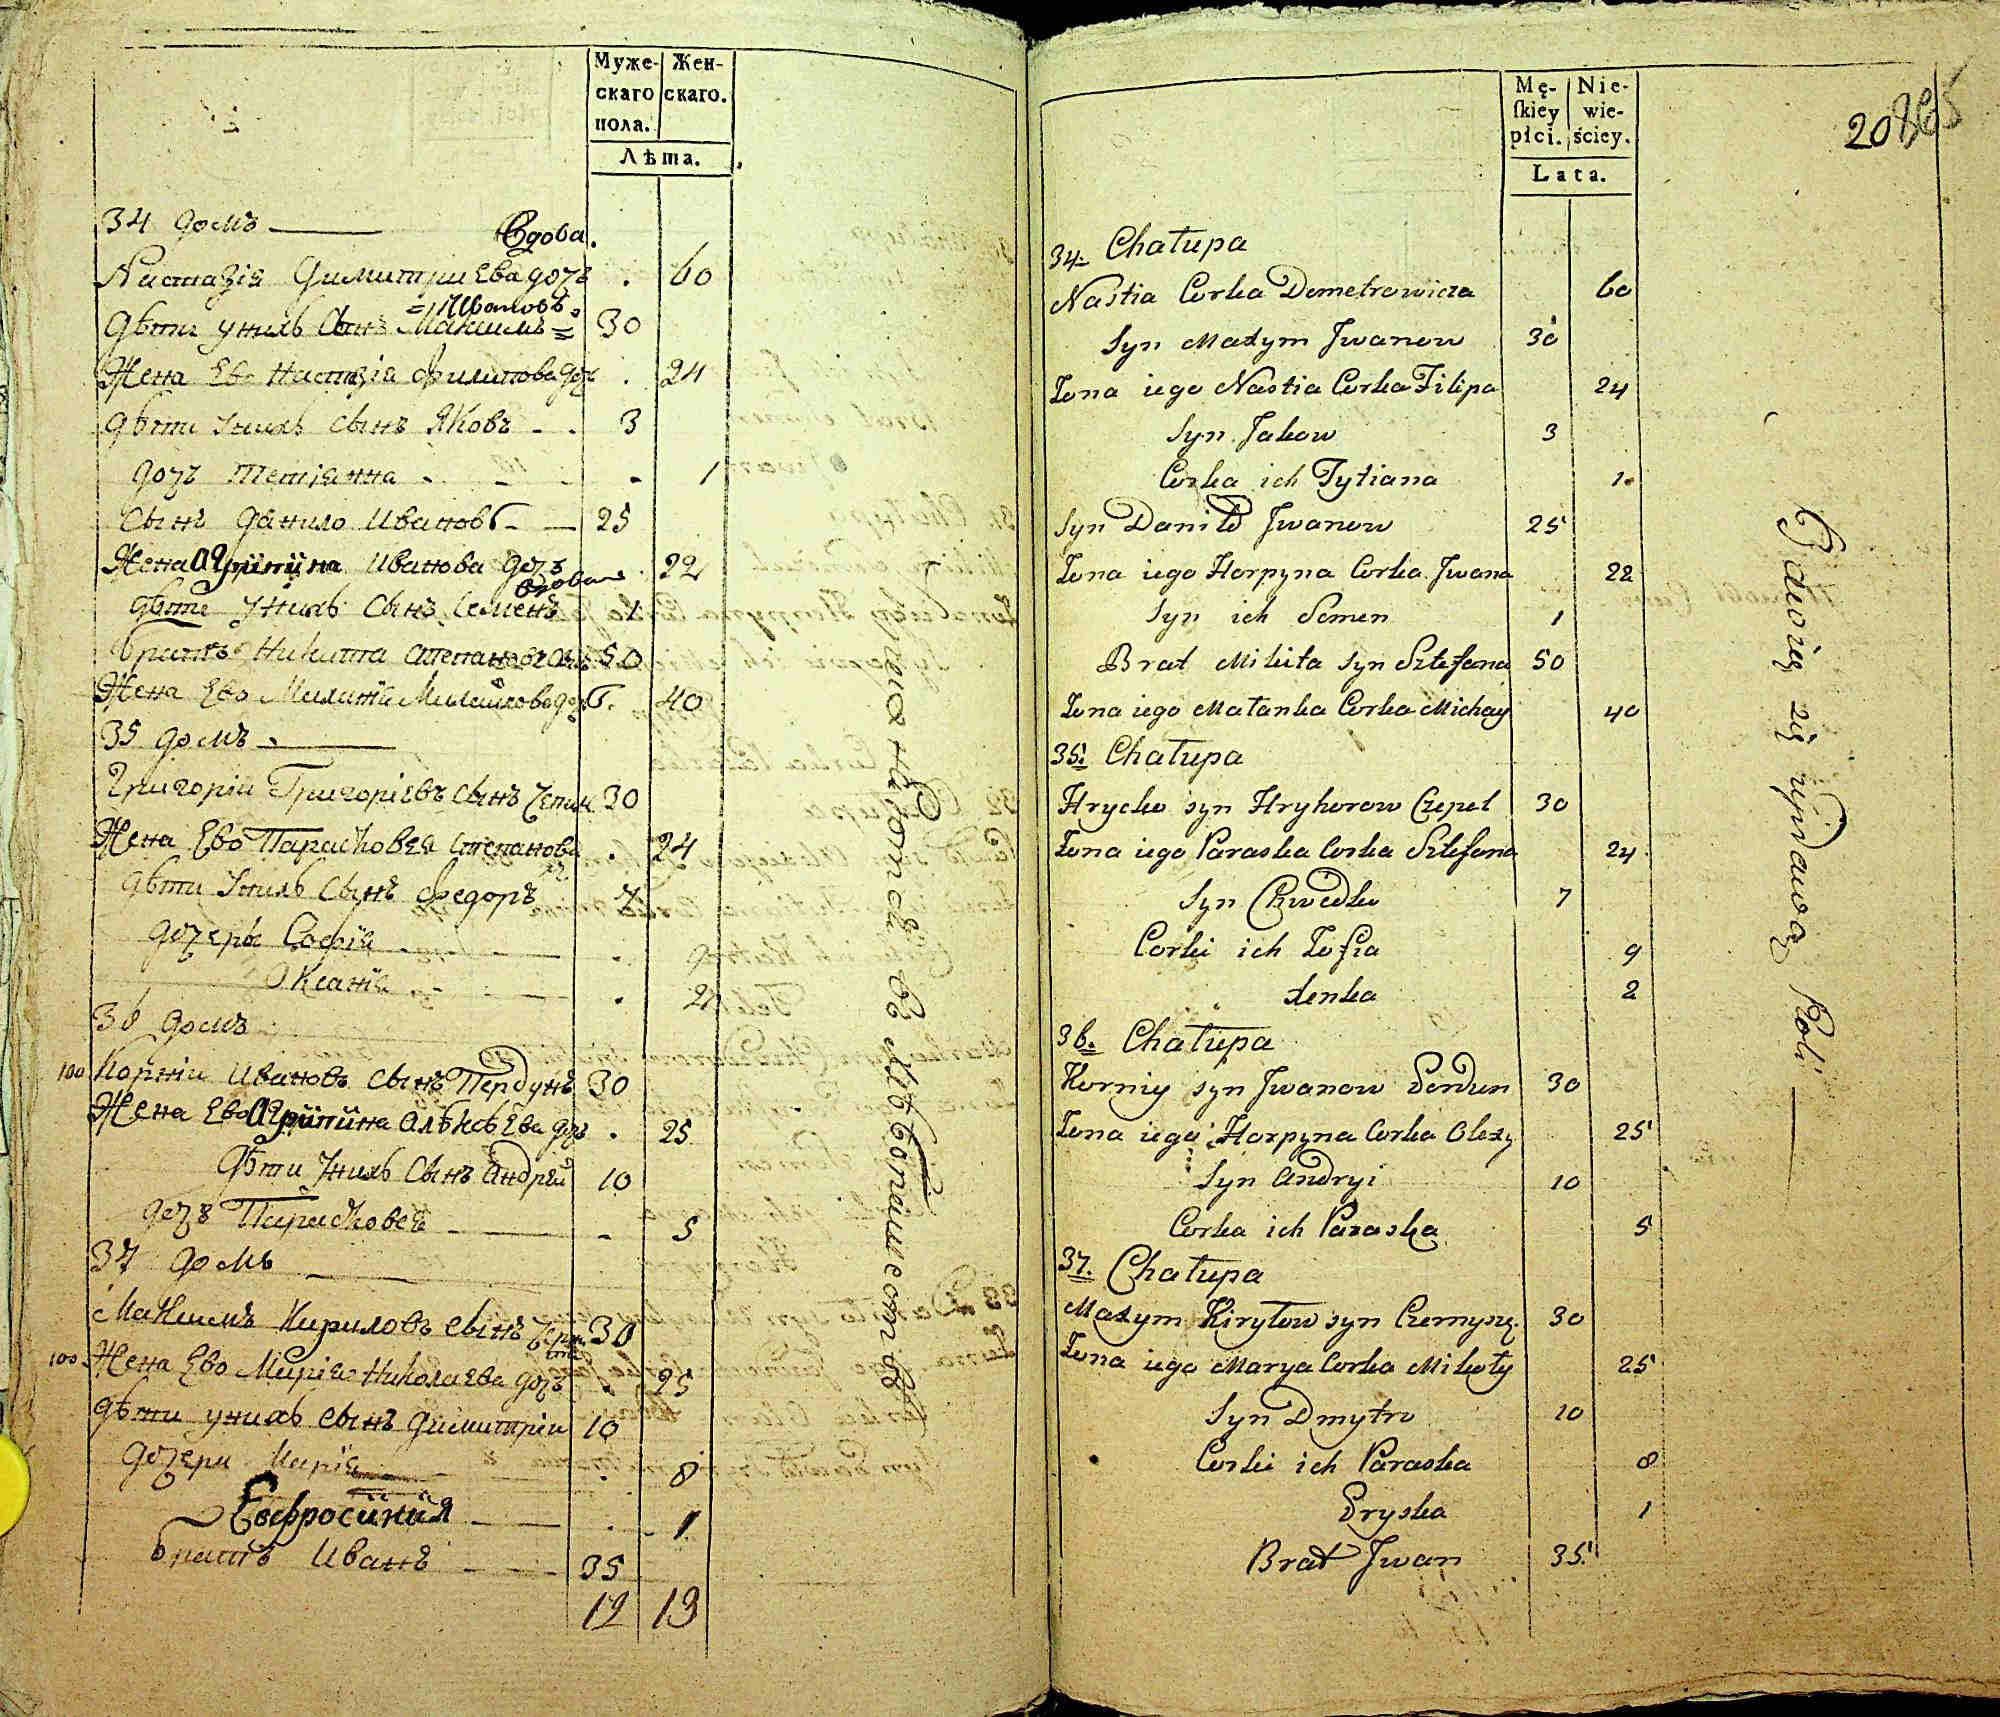 Муже-
скаго
пола.
Жен-
скаго.
Лѣта.
34 домъ
Вдова.
Настазія Димитриева дочъ . 60
=Ивановъ.
Дѣти унихъ Сынъ Максимъ= 30
Жена Ево Настазія Филипова доч . 24
Дѣти Унихъ Сынъ Яковъ - . 3
дочъ Тетіанна - - - 1
Сынъ Данило Ивановъ - 25
Жена Агрипина Иванова дочъ . 22
вдова
Дѣти Унихъ Сынъ Семенъ 1
братъ Никита Степановъ Сынъ 50
Жена Ево Миланія Михайлова доч . 40
35 домъ
Григоріи Григоріевъ сынъ Чепил 30
Жена Ево Парасковея Степанова . 24
дч
Дѣти Унихъ Сынъ Федоръ 7
дочеры Софія . 9
Оксанія . 2
36 домъ
100 Корніи Ивановъ Сынъ Пердунъ 30
Жена Ево Агрипина Алѣксѣева дочъ . 25
Дѣти Унихъ Сынъ Андрей 10
дочъ Парасковея - 5
37 домъ
Максимъ Кириловъ сынъ 30
100 Жена Ево Марія Николаева дочъ . 25
Дѣти унихъ сынъ Димитріи 10
дочери Марія . 8
Евфросиния . 1
братъ Иванъ 35
12 13
находятся во мѣстечкѣ
Mę-
skiey
płci.
Nie-
wie-
ściey.
Lata.
20
34. Chałupa
Nastia Corka Demetrowicza 60
Syn Maxym Jwanow 30
Zona iego Nastia Corka Filipa 24
Syn Jakow 3
Corka ich Tytiana 1.
Syn Daniło Jwanow 25
Zona iego Horpyna Corka Jwana 22
Syn ich Semen 1
Brat Mikita Syn Sztefana 50
Zona iego Małanka Corka Michay 40
35. Chałupa
Hrycko syn Hryhorow Czepel 30
Zona iego Paraska Corka Sztefana 24
Syn Chwedko 7
Corki ich Zofia 9
Xenka 2
36. Chałupa
Korniy syn Jwanow Perdun 30
Zona iego Horpyna Corka Olexy 25
Syn Andryi 10
Corka ich Paraska 5
37. Chałupa
Maxym Kiryłow syn Czernysz. 30
Zona iego Marya Corka Mikoły 25
Syn Dmytro 10
Corki ich Paraska 8
Pryska 1
Brat Jwan 35
Bawią się uprawą Roli